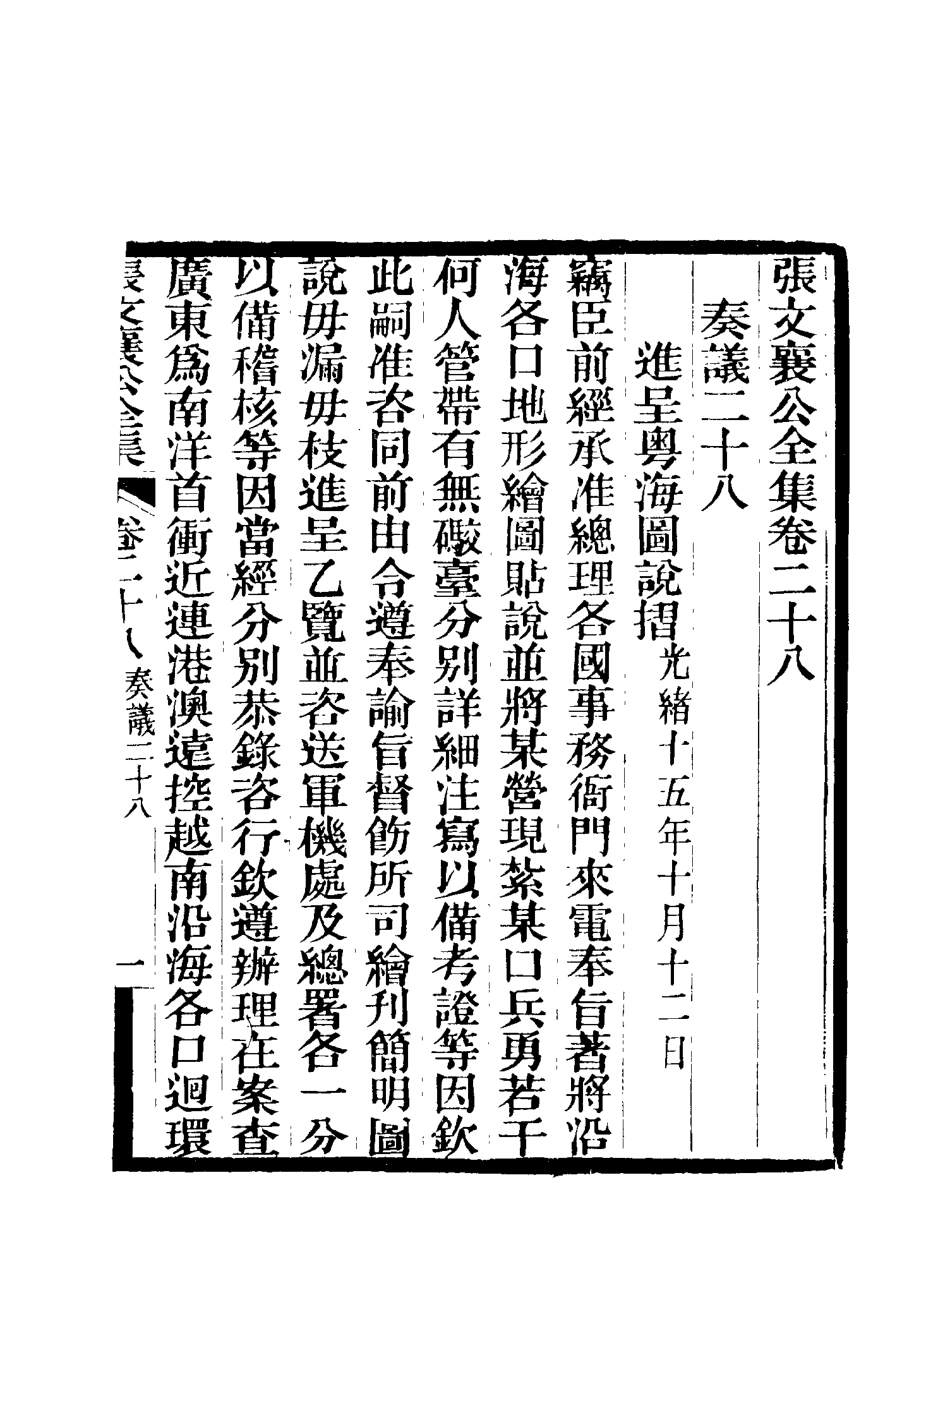 張文襄公全集卷二十八
奏議二十八
進呈粵海圖說摺光緒十五年十月十二日
竊臣前經承准總理各國事務衙門來電奉旨著將沿
海各口地形繪圖貼說並將某營現紮某口兵勇若干
何人管帶有無礮臺分別詳細注寫以備考證等因欽
此嗣准咨同前由令遵奉諭旨督飭所司繪刊簡明圖
說毋漏毋枝進呈乙覽並咨送軍機處及總署各一分
以備稽核等因當經分別恭錄咨行欽遵辦理在案查
廣東爲南洋首衝近連港澳遠控越南沿海各口迴環
張文襄公全集 卷二十八 奏議二十八 一